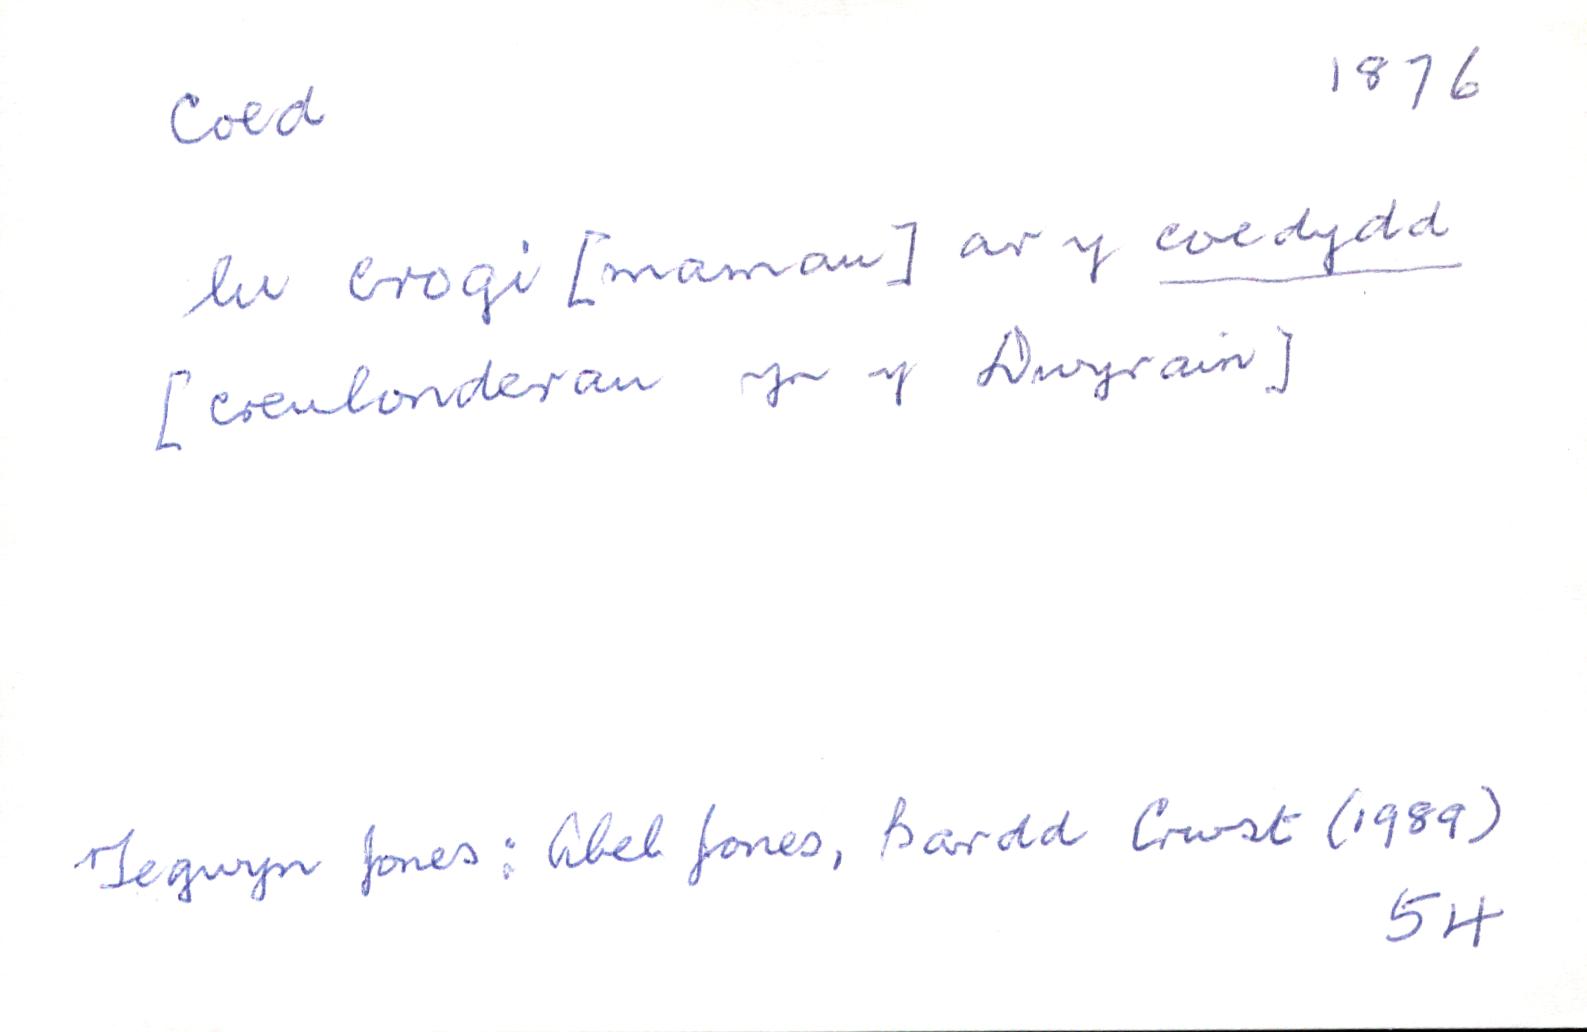 Coed
1876
Eu crogi [mamau] ar y coedydd
[creulonderau yn y Dwyrain]
Tegwyn Jones: Abel Jones, Bardd Crwst (1989)
54